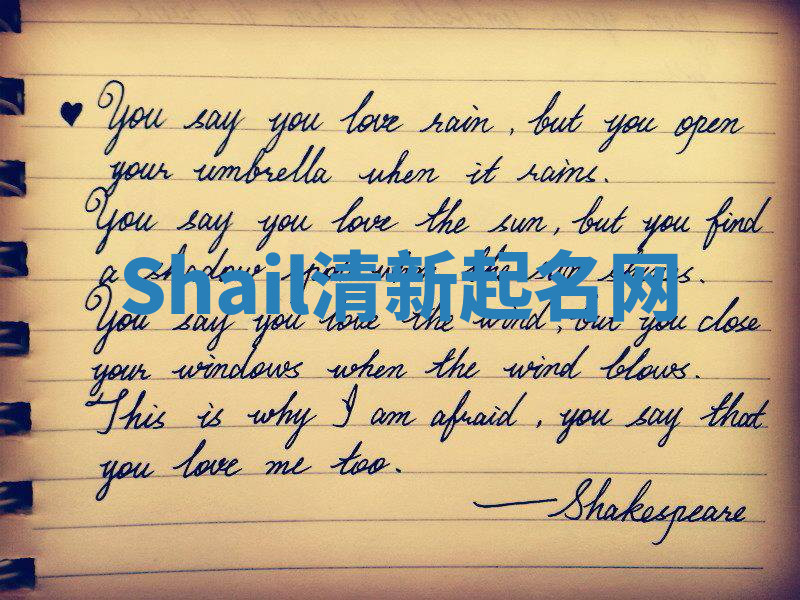 ♥ You say you love rain, but you open
your umbrella when it rains.
You say you love the sun, but you find
a shadow spot when the sun shines.
Shail清新起名网
You say you love the wind, but you close
your windows when the wind blows.
This is why I am afraid, you say that
you love me too.
—Shakespeare